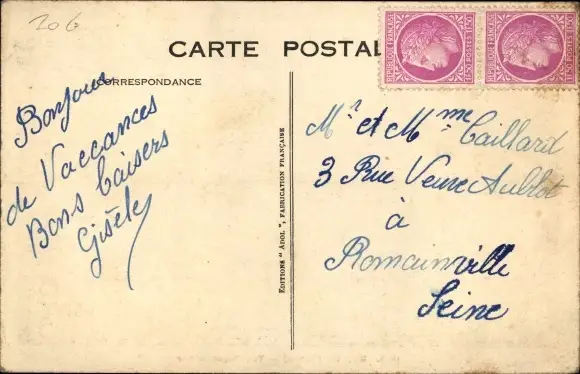 206
CARTE POSTAL
CORRESPONDANCE
Bonjour
de Vaccances
Bons baisers
Gisèle
EDITIONS "ADOL", FABRICATION FRANÇAISE
REPUBLIQUE FRANÇAISE
1F50 POSTES 1F50
REPUBLIQUE FRANÇAISE
1F50 POSTES 1F50
Mr et Mme Caillard
3 Rue Veuve Aublet
à
Romainville
Seine